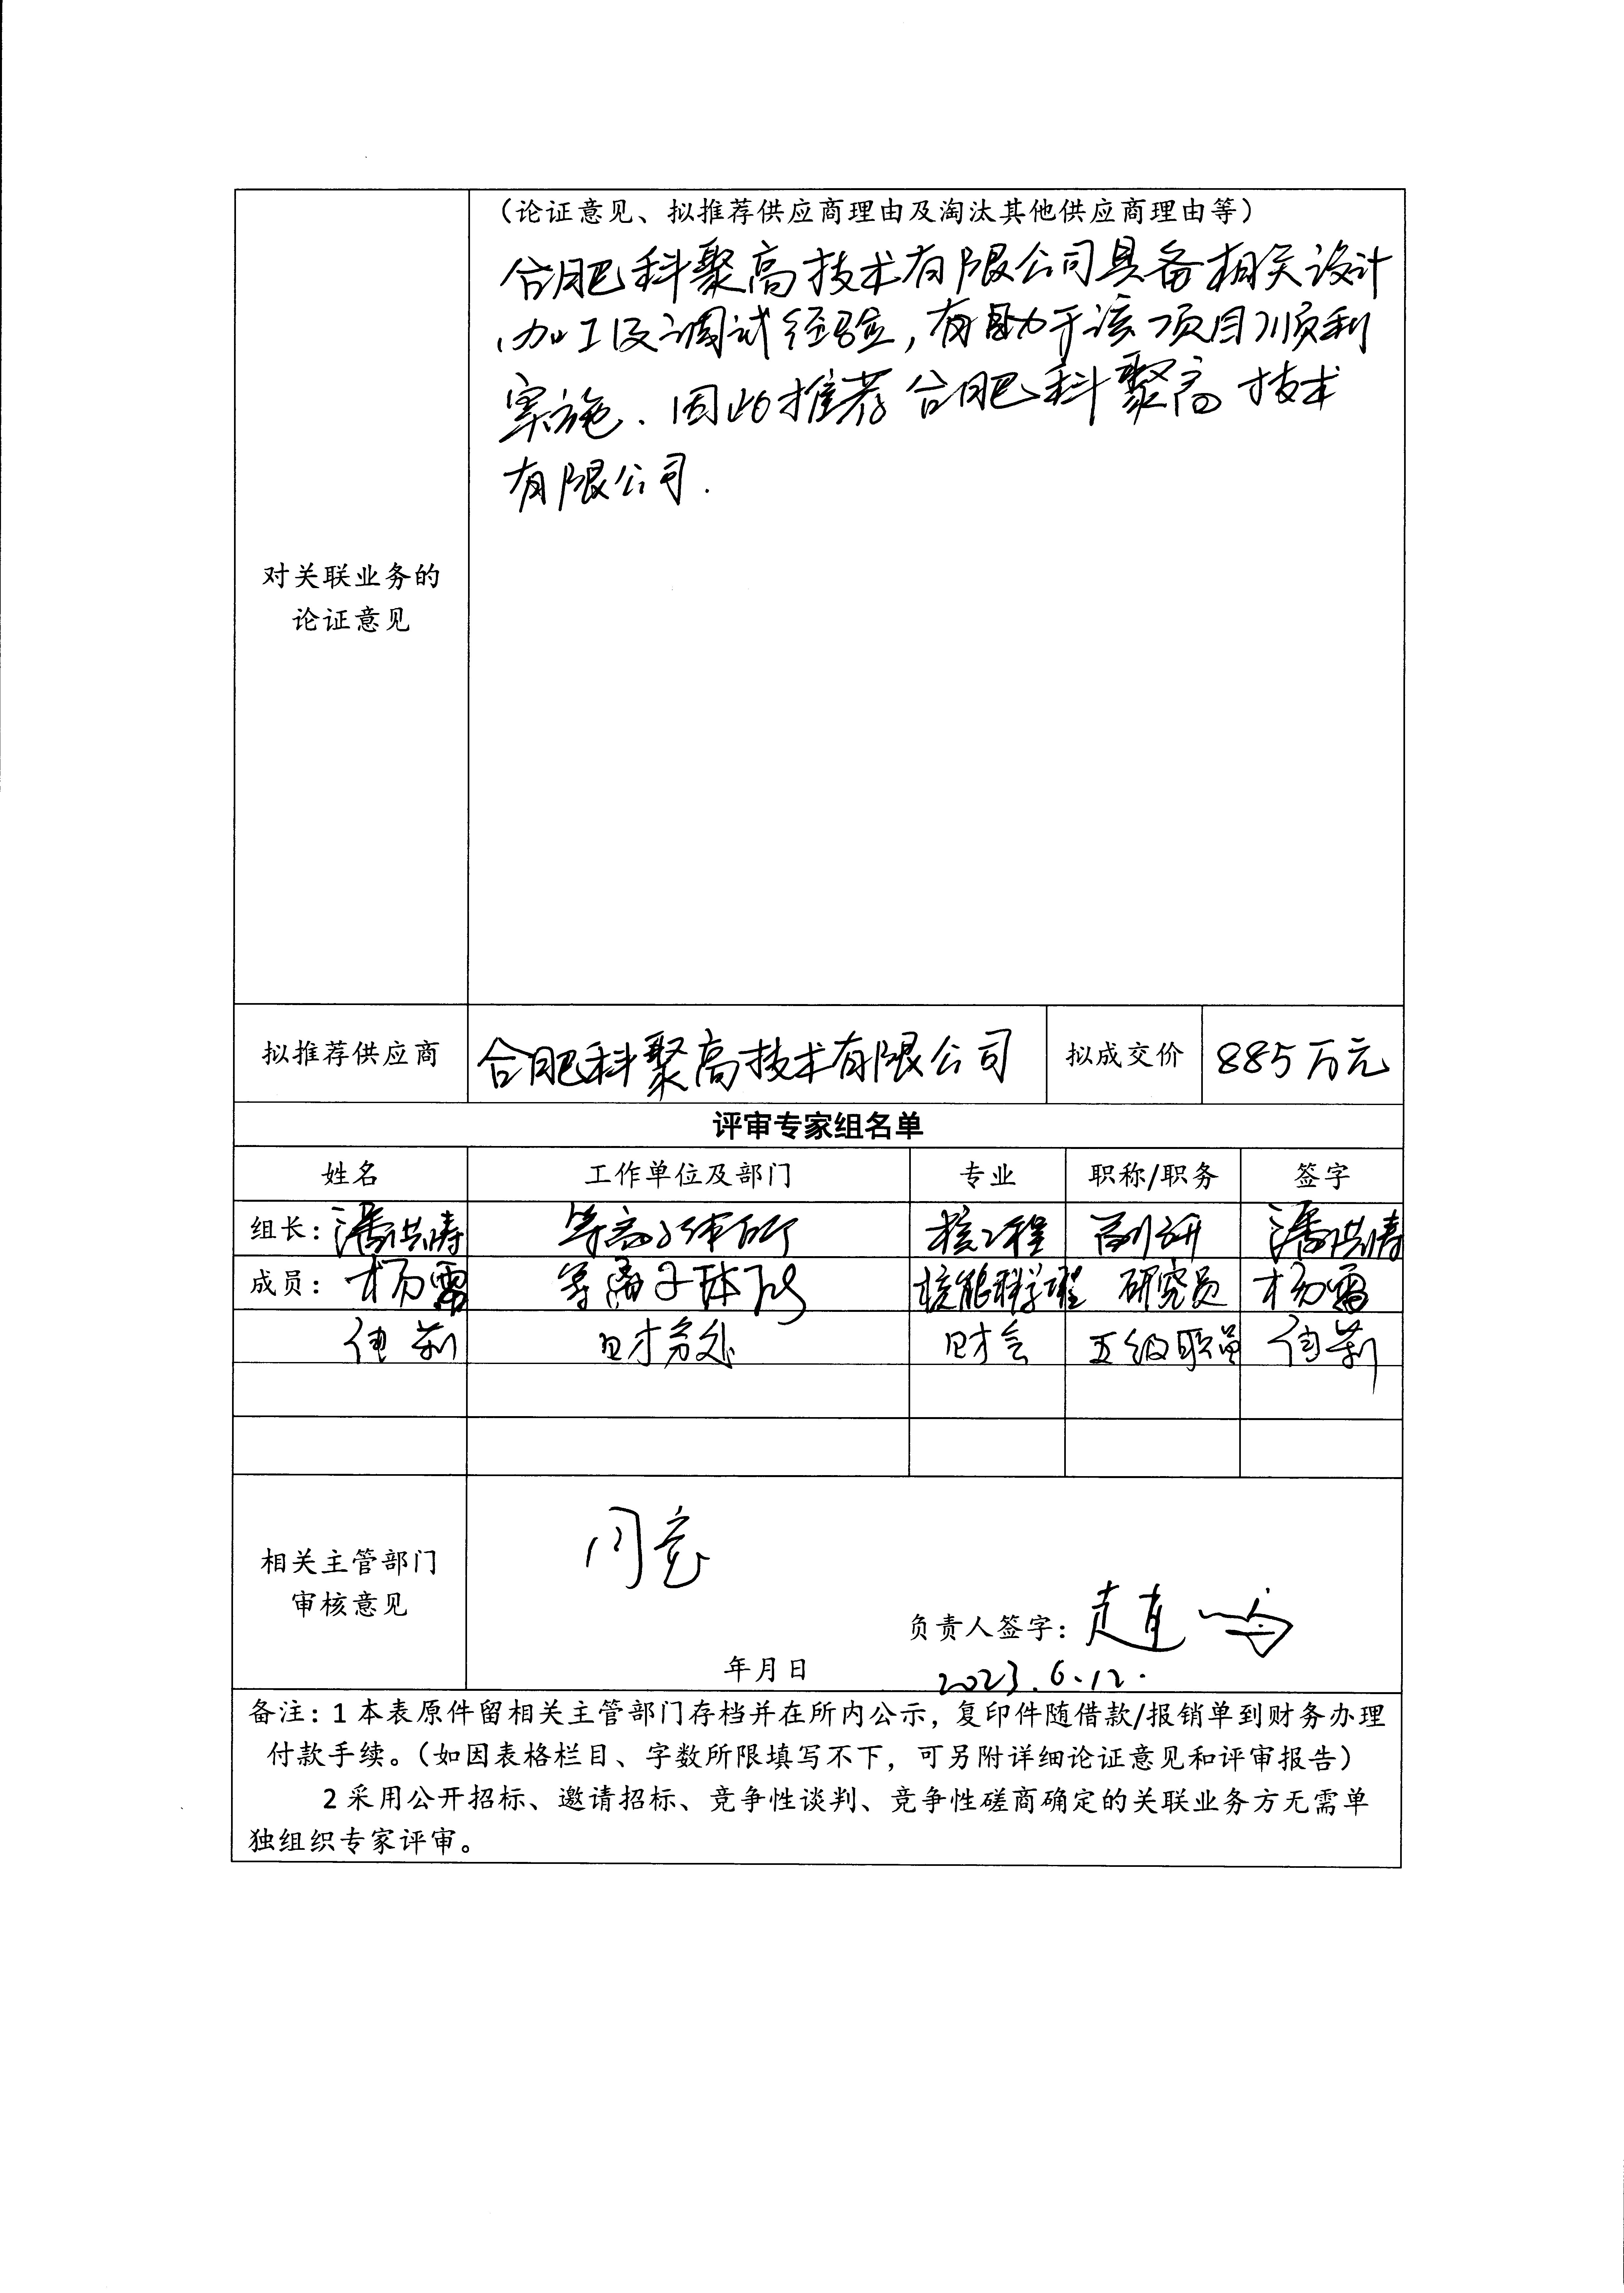 （论证意见、拟推荐供应商理由及淘汰其他供应商理由等）
合肥科聚高技术有限公司具备相关设计
、加工及调试经验，有助于该项目顺利
实施．因此推荐合肥科聚高技术
有限公司．
对关联业务的
论证意见
拟推荐供应商 合肥科聚高技术有限公司 拟成交价 885万元
评审专家组名单
姓名 工作单位及部门 专业 职称/职务 签字
组长：潘洪涛 等离子体所 核工程 副研 潘洪涛
成员：杨雷 等离子体所 核能科学工程 研究员 杨雷
莉 财务处 财会 五级职员 莉
相关主管部门
审核意见
同意
负责人签字：
年月日 2023.6.12.
备注：1 本表原件留相关主管部门存档并在所内公示，复印件随借款/报销单到财务办理
付款手续。（如因表格栏目、字数所限填写不下，可另附详细论证意见和评审报告）
2 采用公开招标、邀请招标、竞争性谈判、竞争性磋商确定的关联业务方无需单
独组织专家评审。